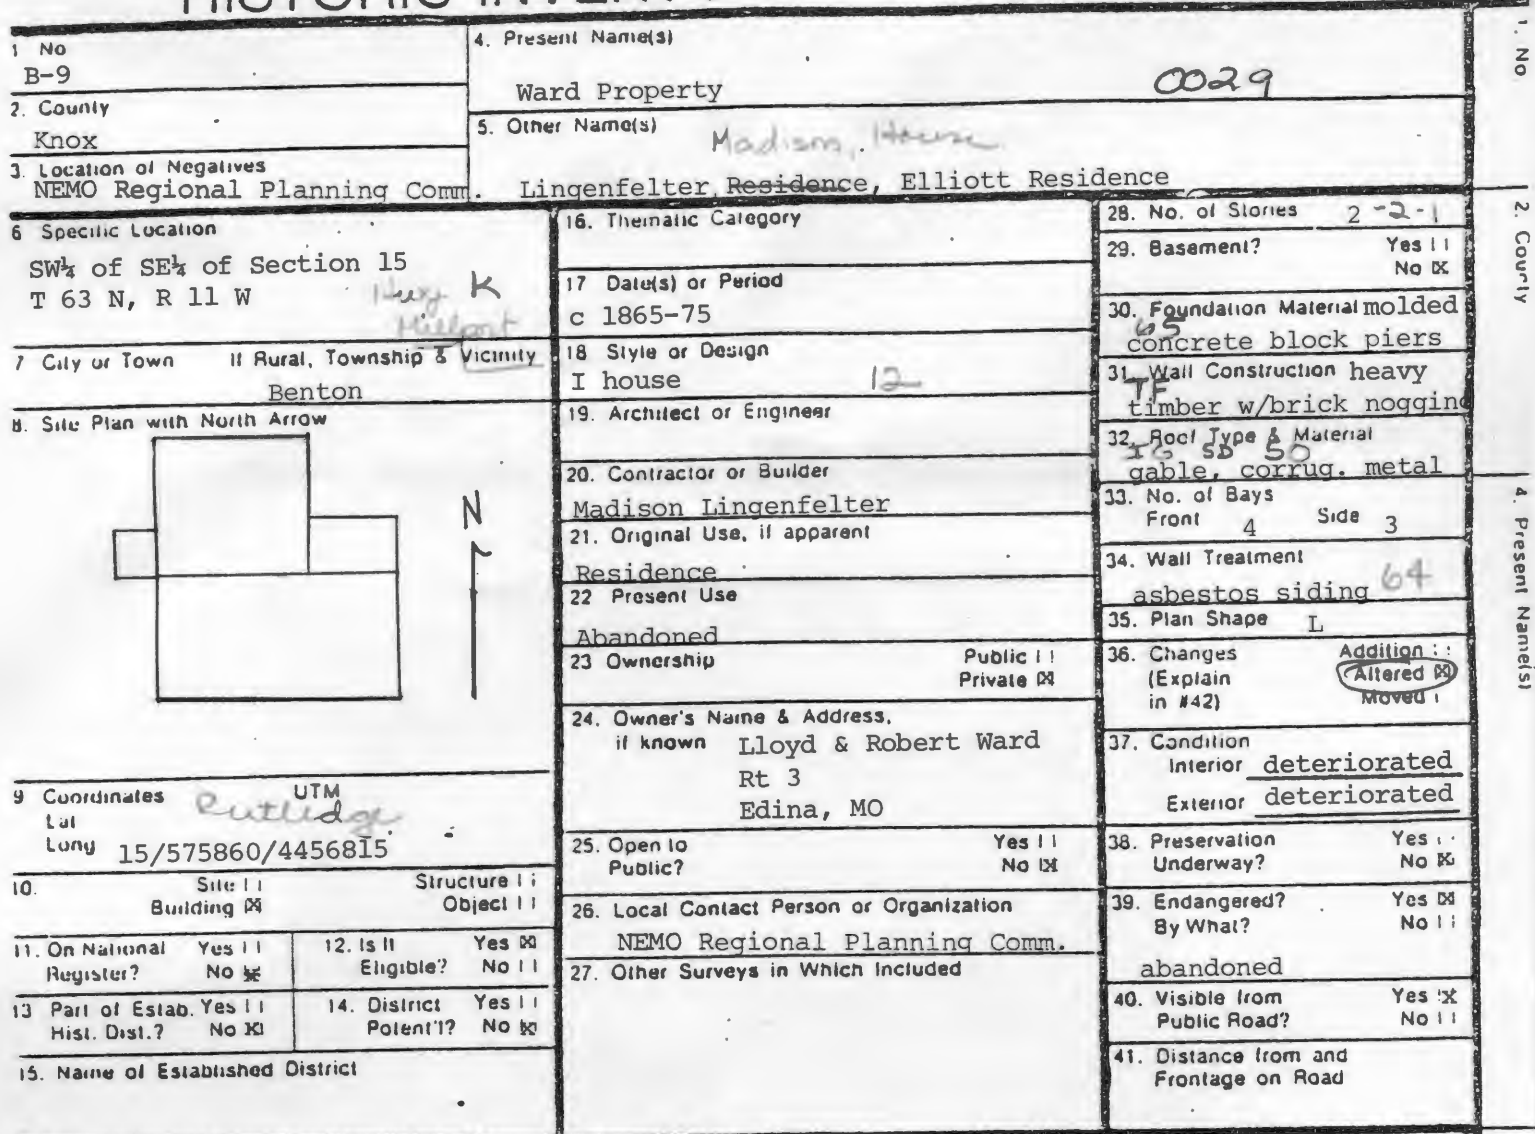 1 No
B-9
2. County
Knox
3. Location of Negatives
NEMO Regional Planning Comm.
4. Present Name(s)
Ward Property
0029
5. Other Name(s)
Madison, House
Lingenfelter Residence, Elliott Residence
6 Specific Location
SW¼ of SE¼ of Section 15
T 63 N, R 11 W
Hwy K
Millport
7 City or Town If Rural, Township & Vicinity
Benton
8. Site Plan with North Arrow
N
9 Coordinates UTM
Rutledge
Lat
Long 15/575860/4456815
10. Site Structure
Building ☒ Object
11. On National Yes
Register? No ☒
12. Is It Yes ☒
Eligible? No
13 Part of Estab. Yes
Hist. Dist.? No ☒
14. District Yes
Potent'l? No ☒
15. Name of Established District
16. Thematic Category
17 Date(s) or Period
c 1865-75
18 Style or Design
I house 12
19. Architect or Engineer
20. Contractor or Builder
Madison Lingenfelter
21. Original Use, if apparent
Residence
22 Present Use
Abandoned
23 Ownership Public
Private ☒
24. Owner's Name & Address,
if known Lloyd & Robert Ward
Rt 3
Edina, MO
25. Open to Yes
Public? No ☒
26. Local Contact Person or Organization
NEMO Regional Planning Comm.
27. Other Surveys in Which Included
28. No. of Stories 2-2-1
29. Basement? Yes
No ☒
30. Foundation Material molded
65
concrete block piers
31. Wall Construction heavy
TF
timber w/brick nogging
32. Roof Type & Material
SD 50
gable, corrug. metal
33. No. of Bays
Front 4 Side 3
34. Wall Treatment
asbestos siding 64
35. Plan Shape L
36. Changes Addition
(Explain Altered ☒
in #42) Moved
37. Condition
Interior deteriorated
Exterior deteriorated
38. Preservation Yes
Underway? No ☒
39. Endangered? Yes ☒
By What? No
abandoned
40. Visible from Yes ☒
Public Road? No
41. Distance from and
Frontage on Road
1. No
2. County
4. Present Name(s)